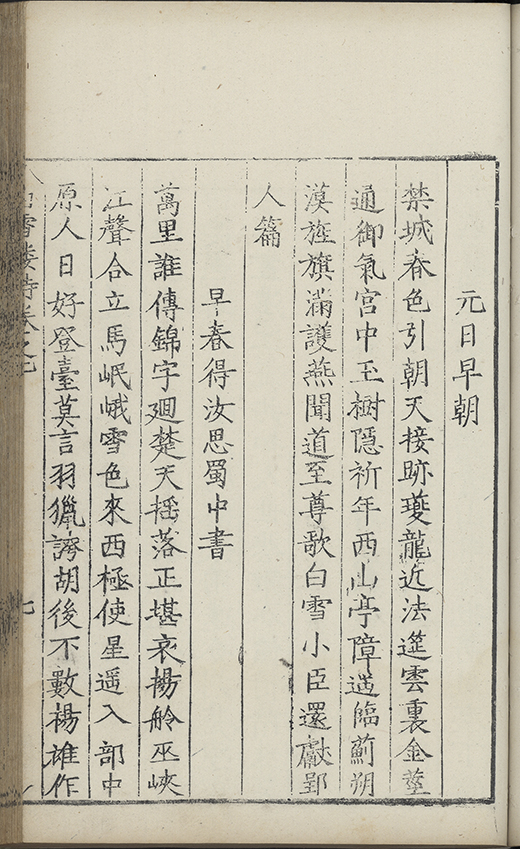 元日早朝
禁城春色引朝天接跡夔龍近法筵雲裏金莖
通御氣宮中玉樹隱祈年西山亭障遥臨薊朔
漠旌旗滿護燕聞道至尊歌白雪小臣還獻郢
人篇
早春得汝思蜀中書
萬里誰傳錦字廻楚天揺落正堪哀揚舲巫峽
江聲合立馬岷峨雪色來西極使星遥入部中
原人日好登臺莫言羽獵誇胡後不數楊雄作
雪樓詩卷之七
七